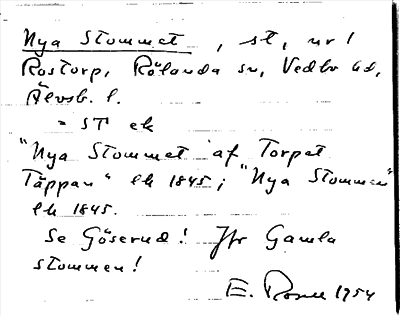 Nya Stommet, st, nr 1
Rostorp, Rölanda sn, Vedbo hd,
Älvsb. l.
= ST ek
"Nya Stommet af Torpet
Täppan" lk 1845; "Nya Stommen"
lk 1845.
Se Göserud! Jfr Gamla
stommen!
E. 1954